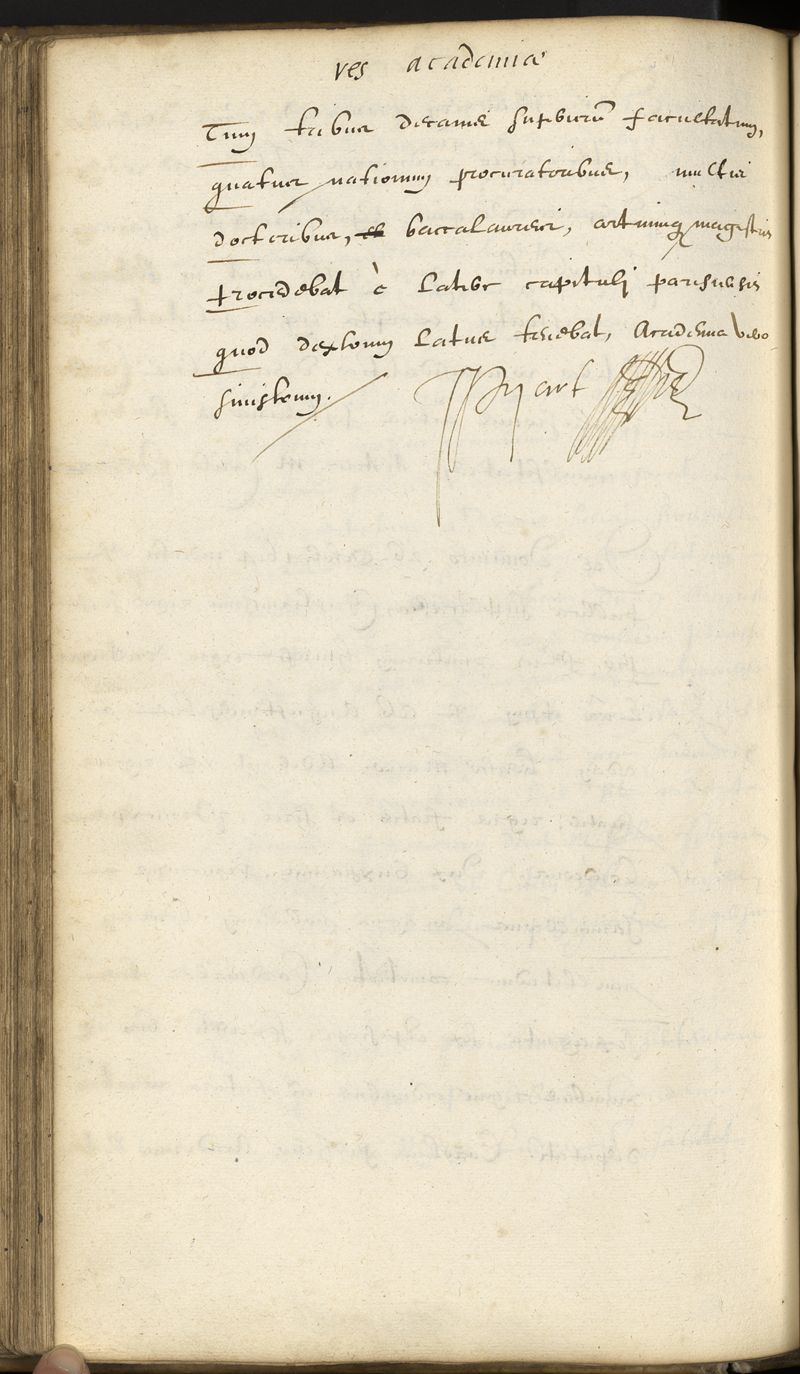 res academiæ
Cum tribus decanis superiorū facultatum,
quatuor nationum procuratoribus, multis
doctoribus, baccalaureis, artiumq magistris
procedebat è latere capituli parisiensis
quod dextrum latus tenebat, Academia vero
sinistrum.